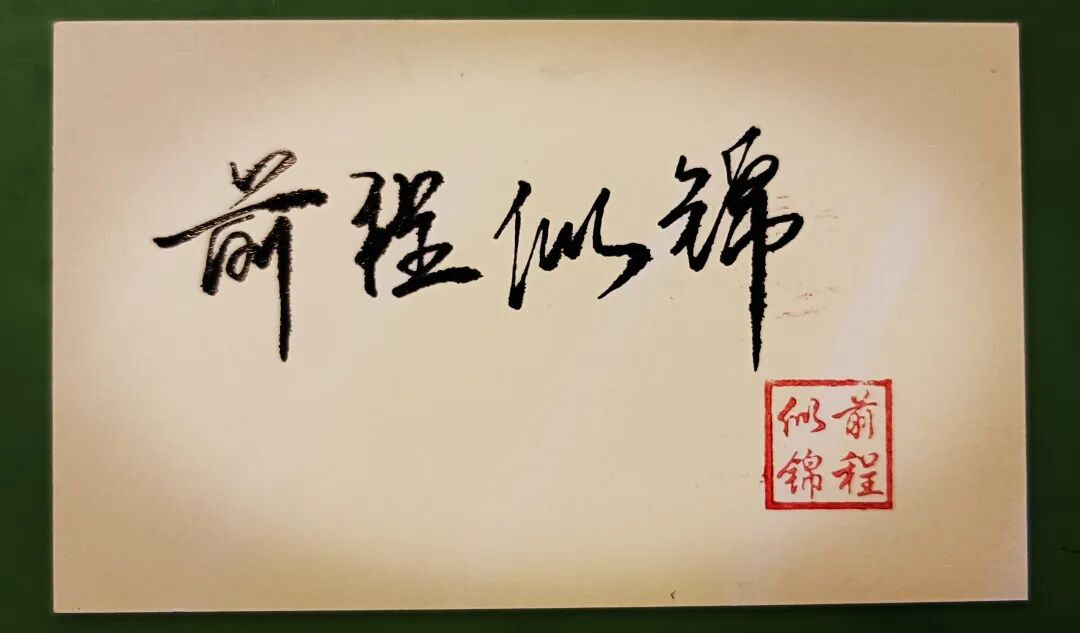 前程似锦
前程
似锦